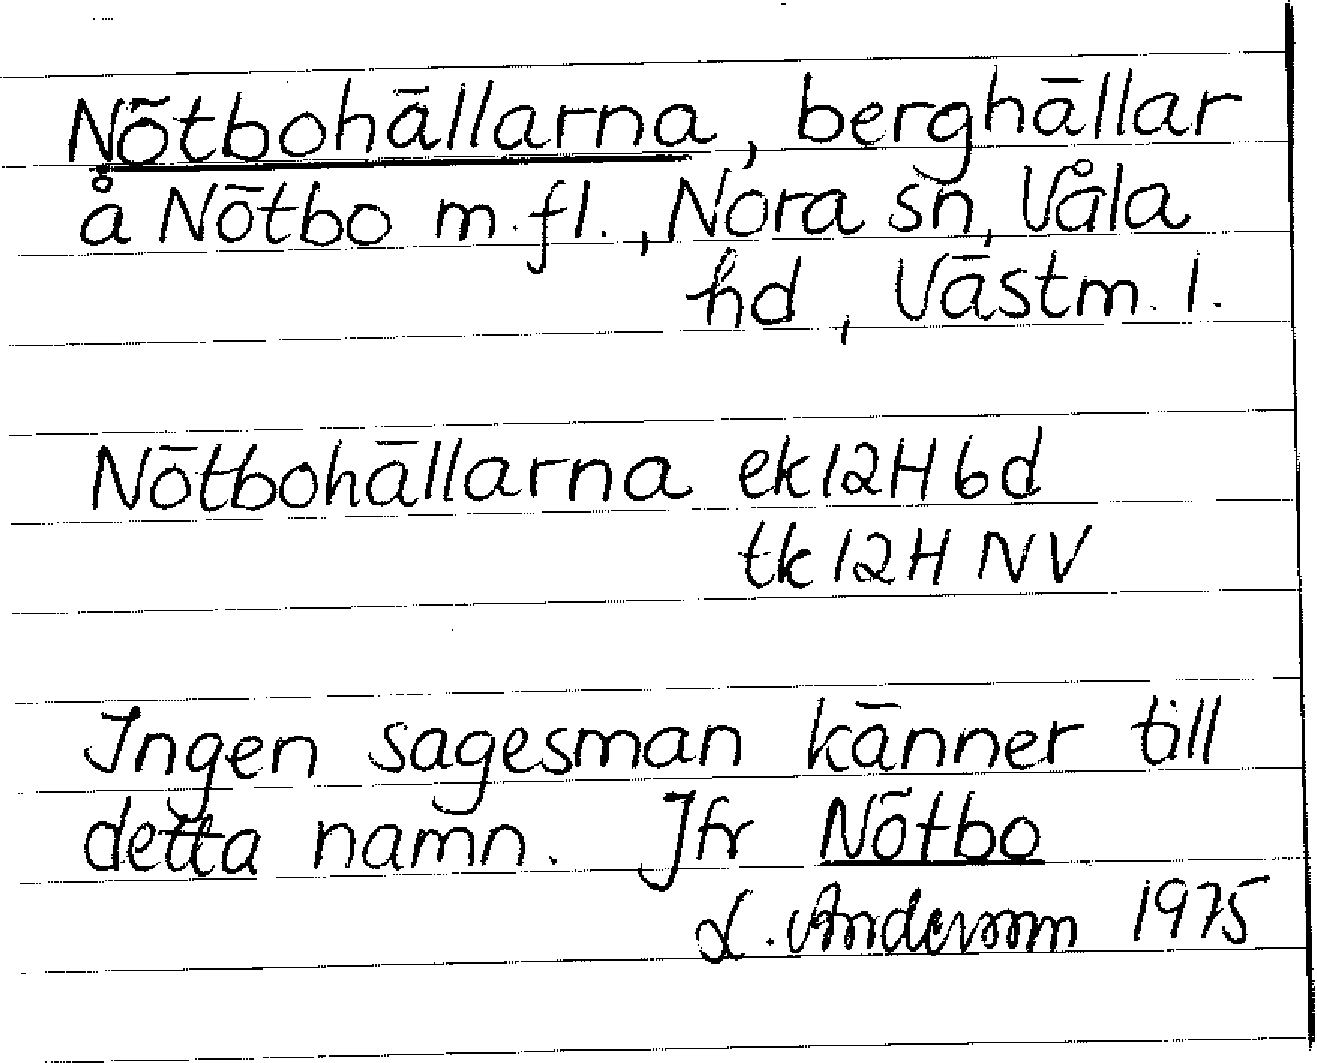 Nötbohällarna, berghällar
å Nötbo m.fl., Nora sn, Våla
hd, Västm. l.
Nötbohällarna ek 12H 6d
tk 12H NV
Ingen sagesman känner till
detta namn. Jfr Nötbo
L. Andersson 1975